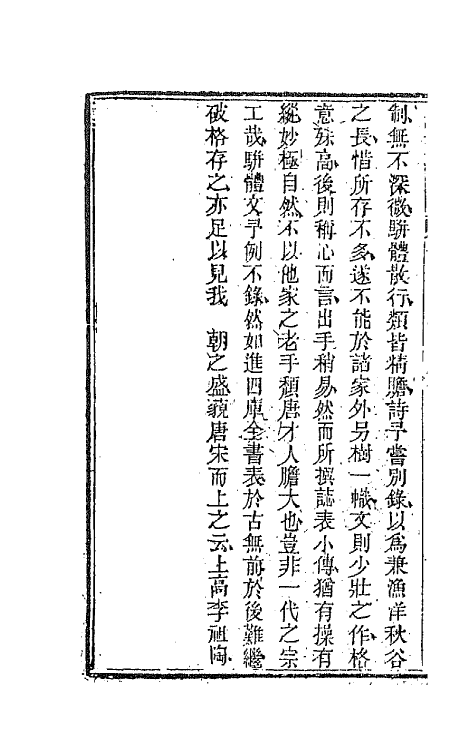 制無不深微駢體散行類皆精贍詩予嘗別錄以爲兼漁洋秋谷
之長惜所存不多遂不能於諸家外另樹一幟文則少壯之作格
意殊高後則稱心而言出手稍易然而所撰誌表小傳猶有操有
縱妙極自然不以他家之老手頹唐才人膽大也豈非一代之宗
工哉駢體文予例不錄然如進四庫全書表於古無前於後難繼
破格存之亦足以見我　朝之盛藐唐宋而上之云上高李祖陶